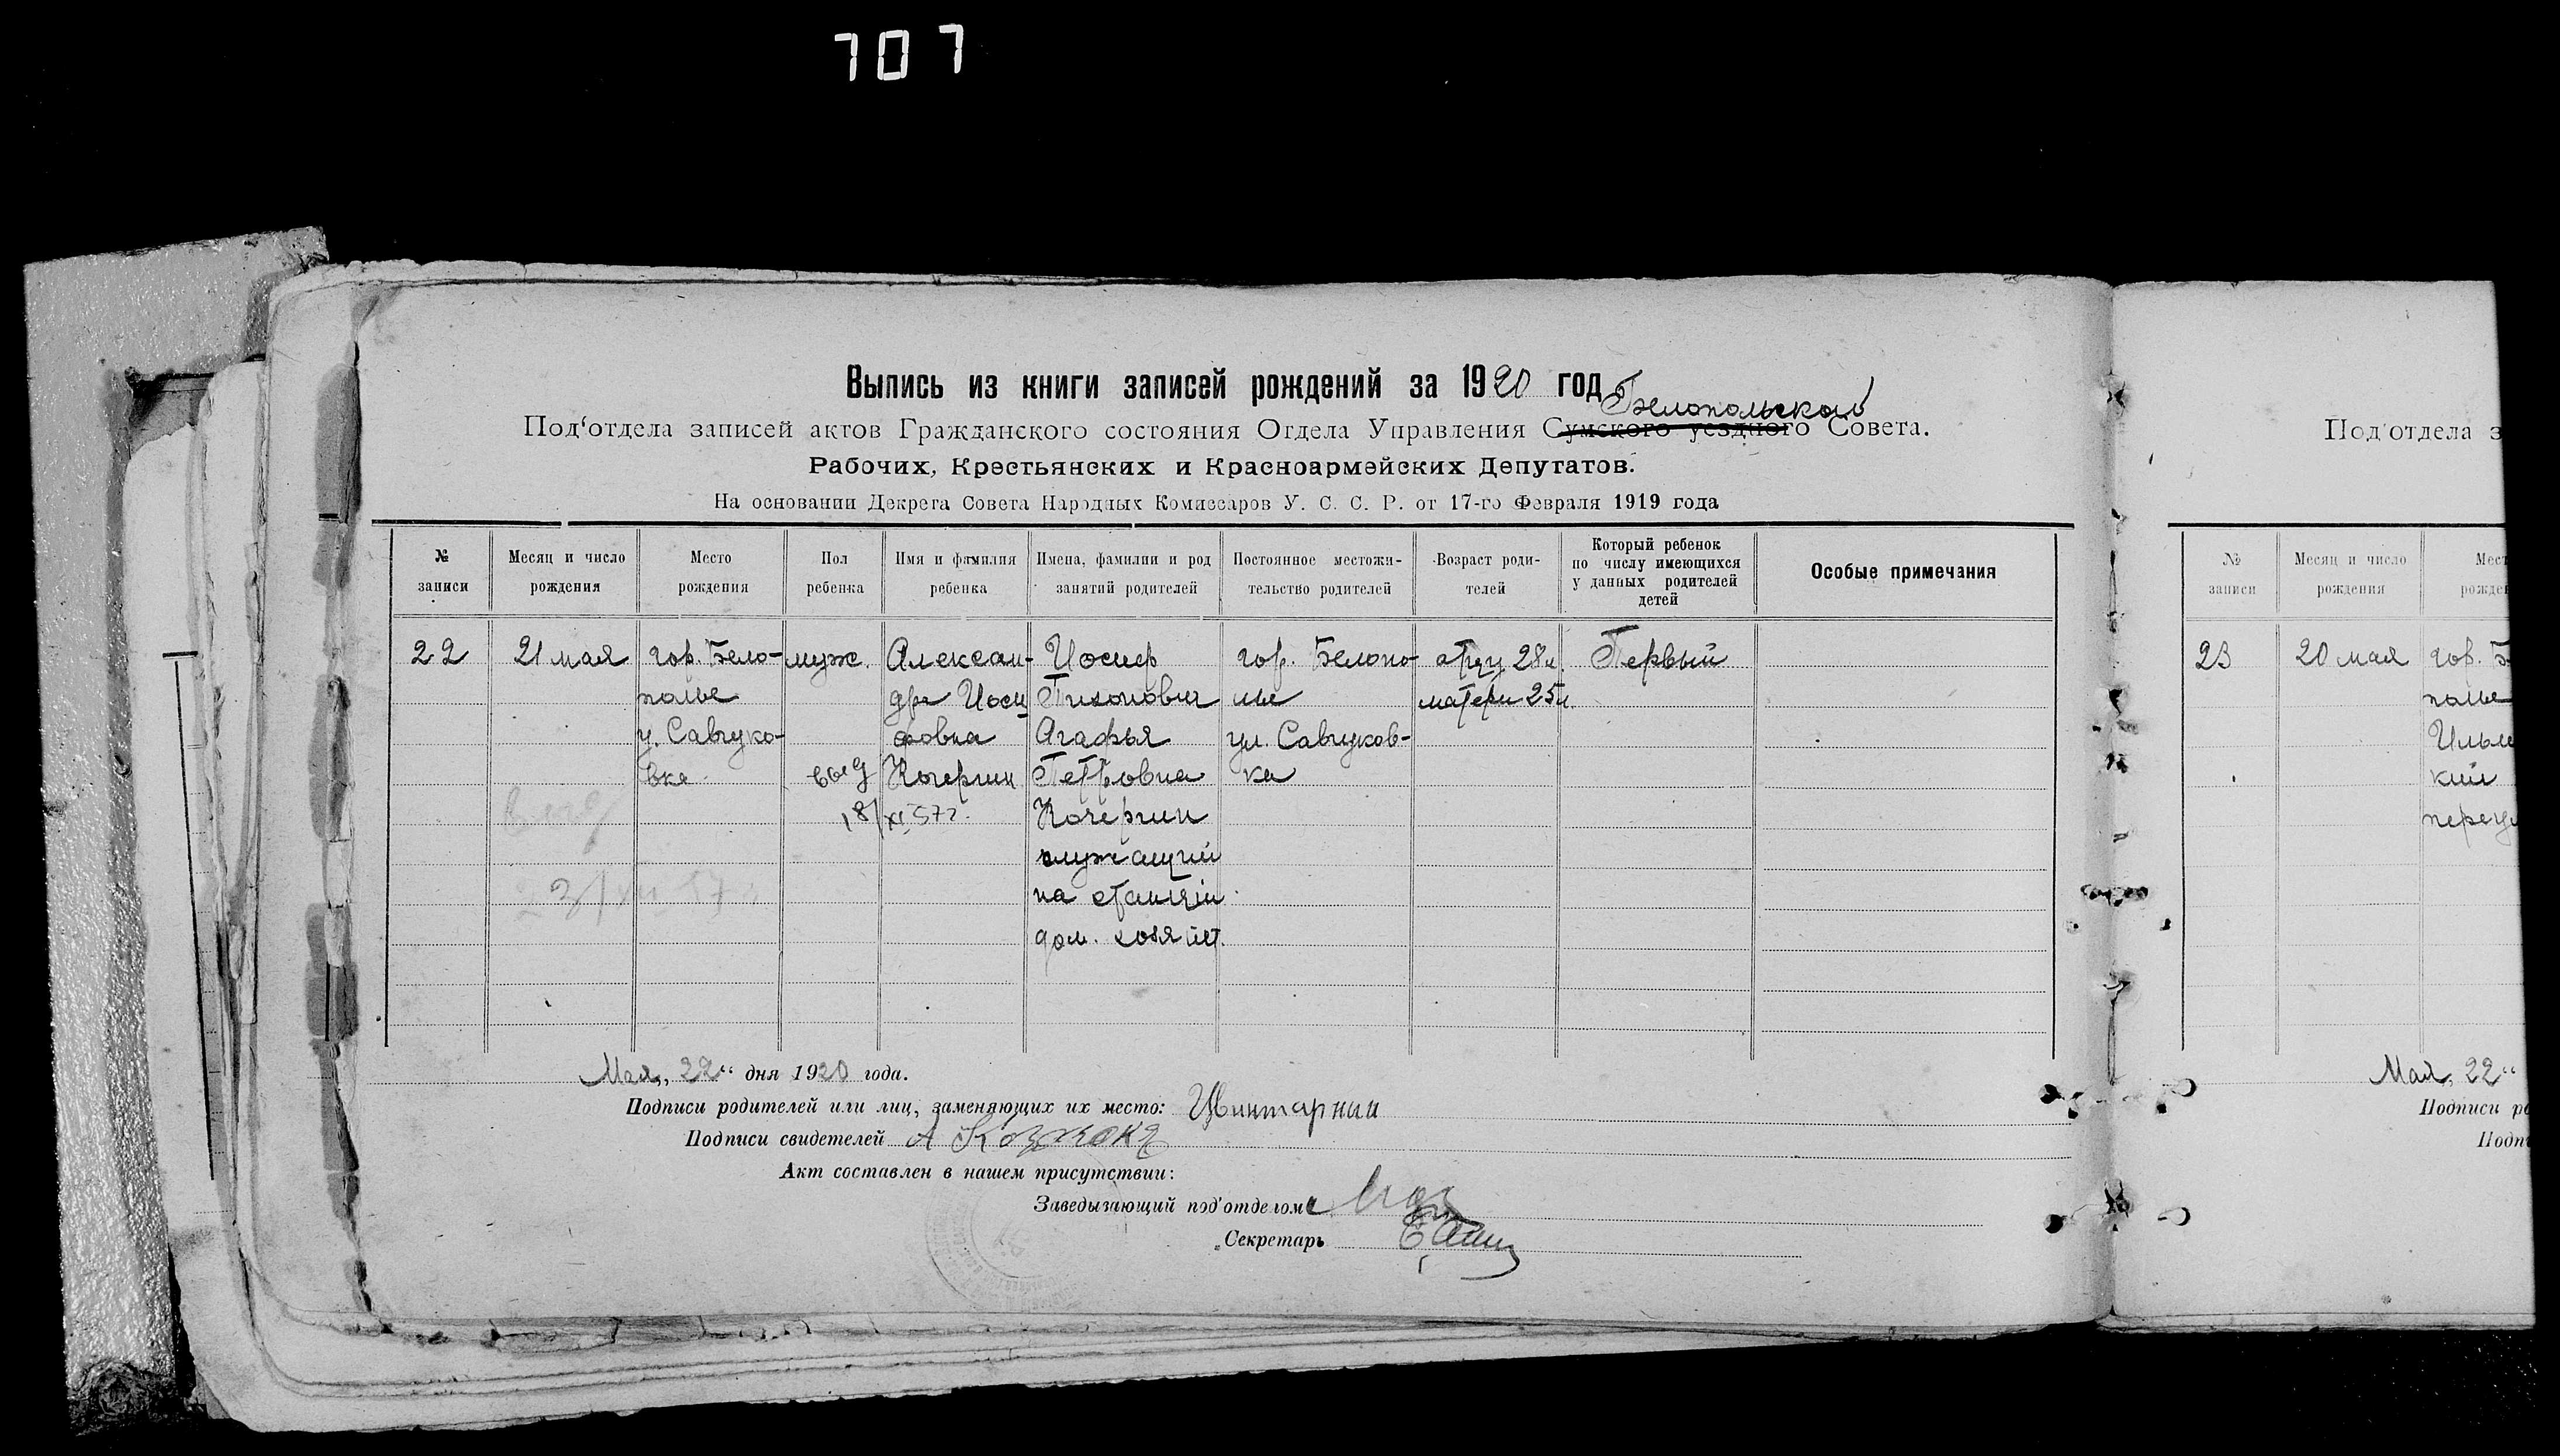 707
Выпись из книги записей рождений за 1920 год
Белопольской
Под'отдела записей актов Гражданского состояния Отдела Управления Сумского уездного Совета.
Рабочих, Крестьянских и Красноармейских Депутатов.
На основании Декрета Совета Народных Комиссаров У. С. С. Р. от 17-го Февраля 1919 года
№ записи
Месяц и число рождения
Место рождения
Пол ребенка
Имя и фамилия ребенка
Имена, фамилии и род занятий родителей
Постоянное местожи-тельство родителей
Возраст роди-телей
Который ребенок по числу имеющихся у данных родителей детей
Особые примечания
22
21 мая
гор. Бело-
полье
у. Савчуко-
вка
муж.
Алексан-
др Иоси
фовна
Кочергин
выд
18/XI 57г.
Иосиф
Тихонович
Агафья
Петровна
Кочергин
служащий
на станции
дом. хозяйст.
гор. Белопо-
лье
ул. Савчуков-
ка
отцу 28 л.
матери 25 л.
Первый
Мая „22“ дня 1920 года.
Подписи родителей или лиц, заменяющих их место: Цвинтарный
Подписи свидетелей А
Акт составлен в нашем присутствии:
Заведывающий под'отделом
Секретарь
Под'отдела з
№ записи
Месяц и число рождения
Мест
рожден
23
20 мая
гор. Б
полье
Ильи
кий
переу
Мая „22“
Подписи ро
Подпи